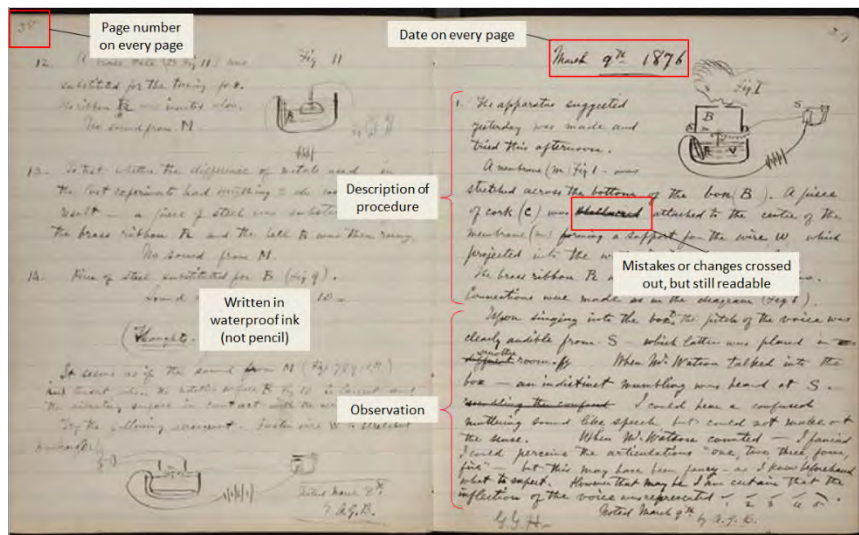 38
Page number
on every page
12. A brass
Fig 11
substituted for the tuning fork.
The ribbon R was inserted also.
No sound from M.
13. To test whether the difference of metals used in
the last experiments had anything to do
result — a piece of steel was
the brass ribbon R and the bell B was then rung.
No sound from M.
14. Piece of steel substituted for B (Fig 9).
Sound
Written in
waterproof ink
(not pencil)
Thoughts.
It seems as if the sound from M
the vibrating surface in contact with the
Try the following arrangement.
Noted March 8th
by A.G.B.
Date on every page
39
March 9th 1876
Fig I
B
S
Description of
procedure
1. The apparatus suggested
yesterday was made and
tried this afternoon.
A membrane (m) Fig 1 - was
stretched across the bottom of the box (B). A piece
of cork (c) was attached to the centre of the
membrane (m) forming a support for the wire W which
projected into the
The brass ribbon R
Connections were made as in the diagram (Fig 1).
Mistakes or changes crossed
out, but still readable
Observation
Upon singing into the box, the pitch of the voice was
clearly audible from S - which latter was placed in
another room. When Mr Watson talked into the
box — an indistinct mumbling was heard at S.
I could hear a confused
muttering sound like speech but could not make out
the sense. When Mr. Watson counted — I fancied
I could perceive the articulations "one, two, three, four,
five" — but this may have been fancy - as I knew beforehand
what to expect. However that may be I am certain that the
inflection of the voice was represented
1 2 3 4 5
G.G.H.
Noted March 9th
by A.G.B.